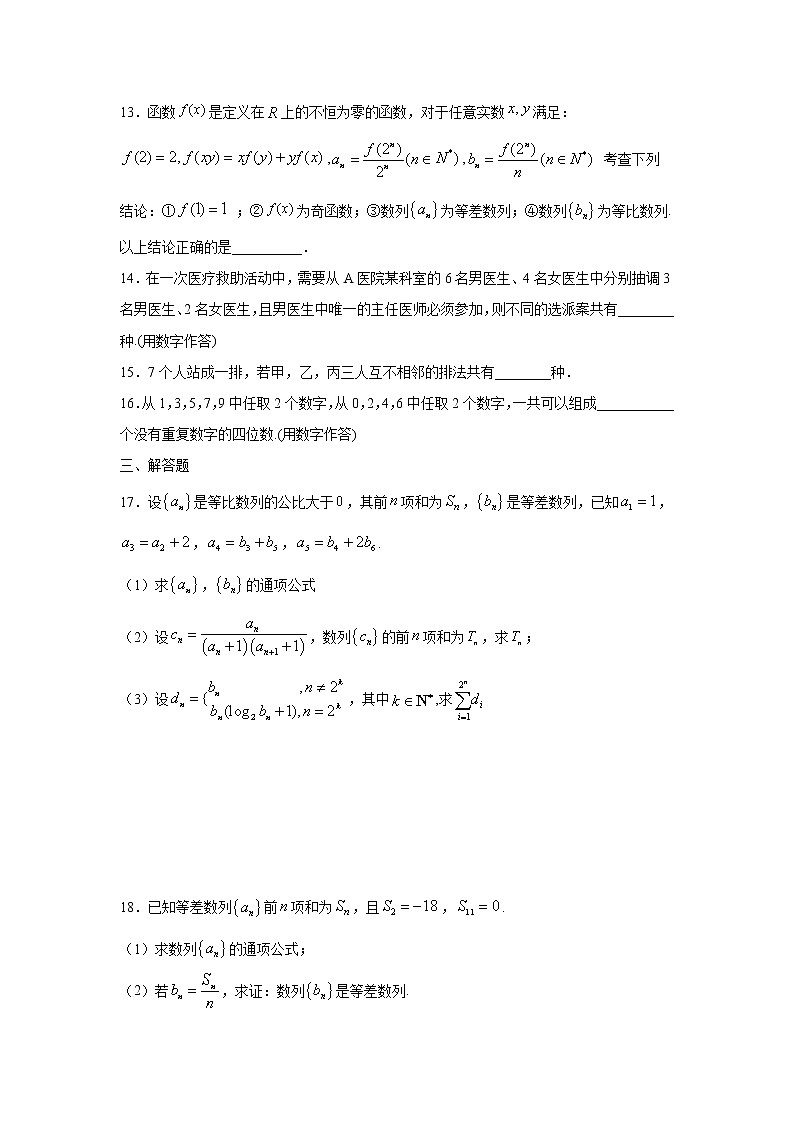 13．函数 f(x) 是定义在 R 上的不恒为零的函数，对于任意实数 x, y 满足：
f(2) = 2, f(xy) = xf(y) + yf(x) ,aₙ = f(2ⁿ)/2ⁿ (n ∈ N*) , bₙ = f(2ⁿ)/n (n ∈ N*) 考查下列
结论：① f(1) = 1 ；② f(x) 为奇函数；③数列{aₙ}为等差数列；④数列{bₙ}为等比数列.
以上结论正确的是__________．
14．在一次医疗救助活动中，需要从 A 医院某科室的 6 名男医生、4 名女医生中分别抽调 3
名男医生、2 名女医生，且男医生中唯一的主任医师必须参加，则不同的选派案共有________
种.(用数字作答)
15．7 个人站成一排，若甲，乙，丙三人互不相邻的排法共有________种．
16.从 1,3,5,7,9 中任取 2 个数字，从 0,2,4,6 中任取 2 个数字，一共可以组成___________
个没有重复数字的四位数.(用数字作答)
三、解答题
17．设{aₙ}是等比数列的公比大于 0 ，其前 n 项和为 Sₙ ，{bₙ}是等差数列，已知 a₁ = 1 ，
a₃ = a₂ + 2 ， a₄ = b₃ + b₅ ， a₅ = b₄ + 2b₆ .
（1）求{aₙ}，{bₙ}的通项公式
（2）设 cₙ = aₙ/((aₙ + 1)(aₙ₊₁ + 1)) ，数列{cₙ}的前 n 项和为 Tₙ ，求 Tₙ ；
（3）设 dₙ = { bₙ , n ≠ 2ᵏ
bₙ(log₂ bₙ + 1), n = 2ᵏ ，其中 k ∈ N* ,求 ∑_{i=1}^{2ⁿ} dᵢ
18．已知等差数列{aₙ}前 n 项和为 Sₙ ，且 S₂ = −18 ， S₁₁ = 0 .
（1）求数列{aₙ}的通项公式；
（2）若 bₙ = Sₙ/n ，求证：数列{bₙ}是等差数列.